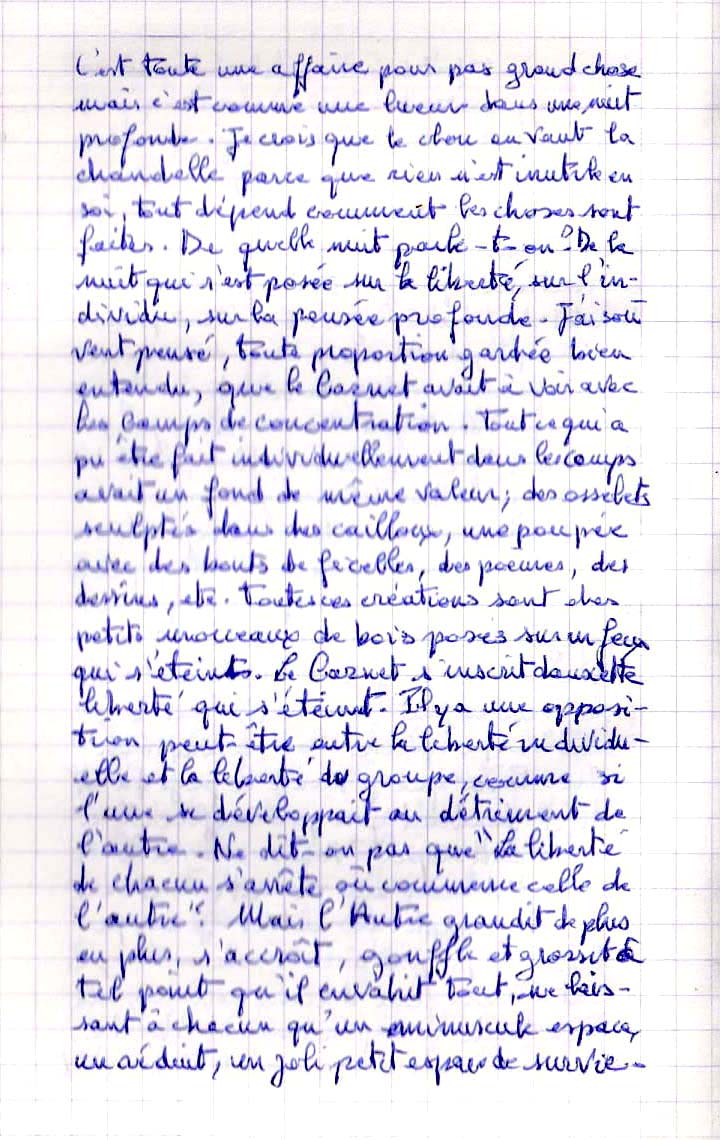 C'est toute une affaire pour pas grand chose
mais c'est comme une lueur dans une nuit
profonde. Je crois que le chou en vaut la
chandelle parce que rien n'est inutile en
soi, tout dépend comment les choses sont
faites. De quelle nuit parle-t-on? De la
nuit qui s'est posée sur la liberté, sur l'in-
dividu, sur la pensée profonde. J'ai sou
vent pensé, toute proportion gardée bien
entendu, que le Carnet avait à voir avec
les camps de concentration. Tout ce qui a
pu être fait individuellement dans les camps
avait un fond de même valeur; des osselets
sculptés dans des cailloux, une poupée
avec des bouts de ficelles, des poèmes, des
dessins, etc. Toutes ces créations sont des
petits morceaux de bois posés sur un feu
qui s'éteint. Le Carnet s'inscrit dans cette
liberté qui s'éteint. Il y a une opposi-
tion peut-être entre la liberté individu-
elle et la liberté du groupe, comme si
l'une se développait au détriment de
l'autre. Ne dit-on pas que "La liberté
de chacun s'arrête où commence celle de
l'autre". Mais l'Autre grandit de plus
en plus, s'accroît, gonfle et grossit à
tel point qu'il envahit tout, ne lais-
sant à chacun qu'un minuscule espace,
un réduit, un joli petit espace de survie.